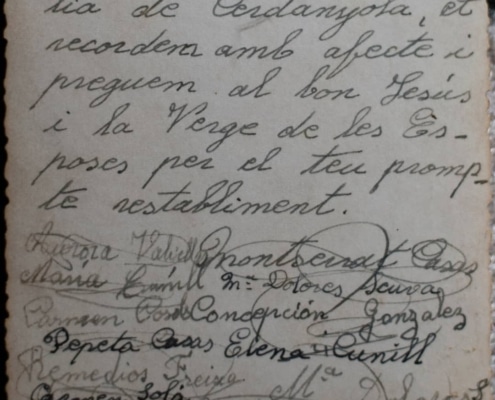 lia de Cerdanyola, et
recordem amb afecte i
preguem al bon Jesús
i la Verge de les Es-
poses per el teu promp-
te restabliment.
Aurora Montserrat Casas
Maria Cunill Mª Dolores
Carmen Concepción Gonzalez
Pepeta Casas Elena Cunill
Remedios Freixa Mª Dolores
Carmen Solà